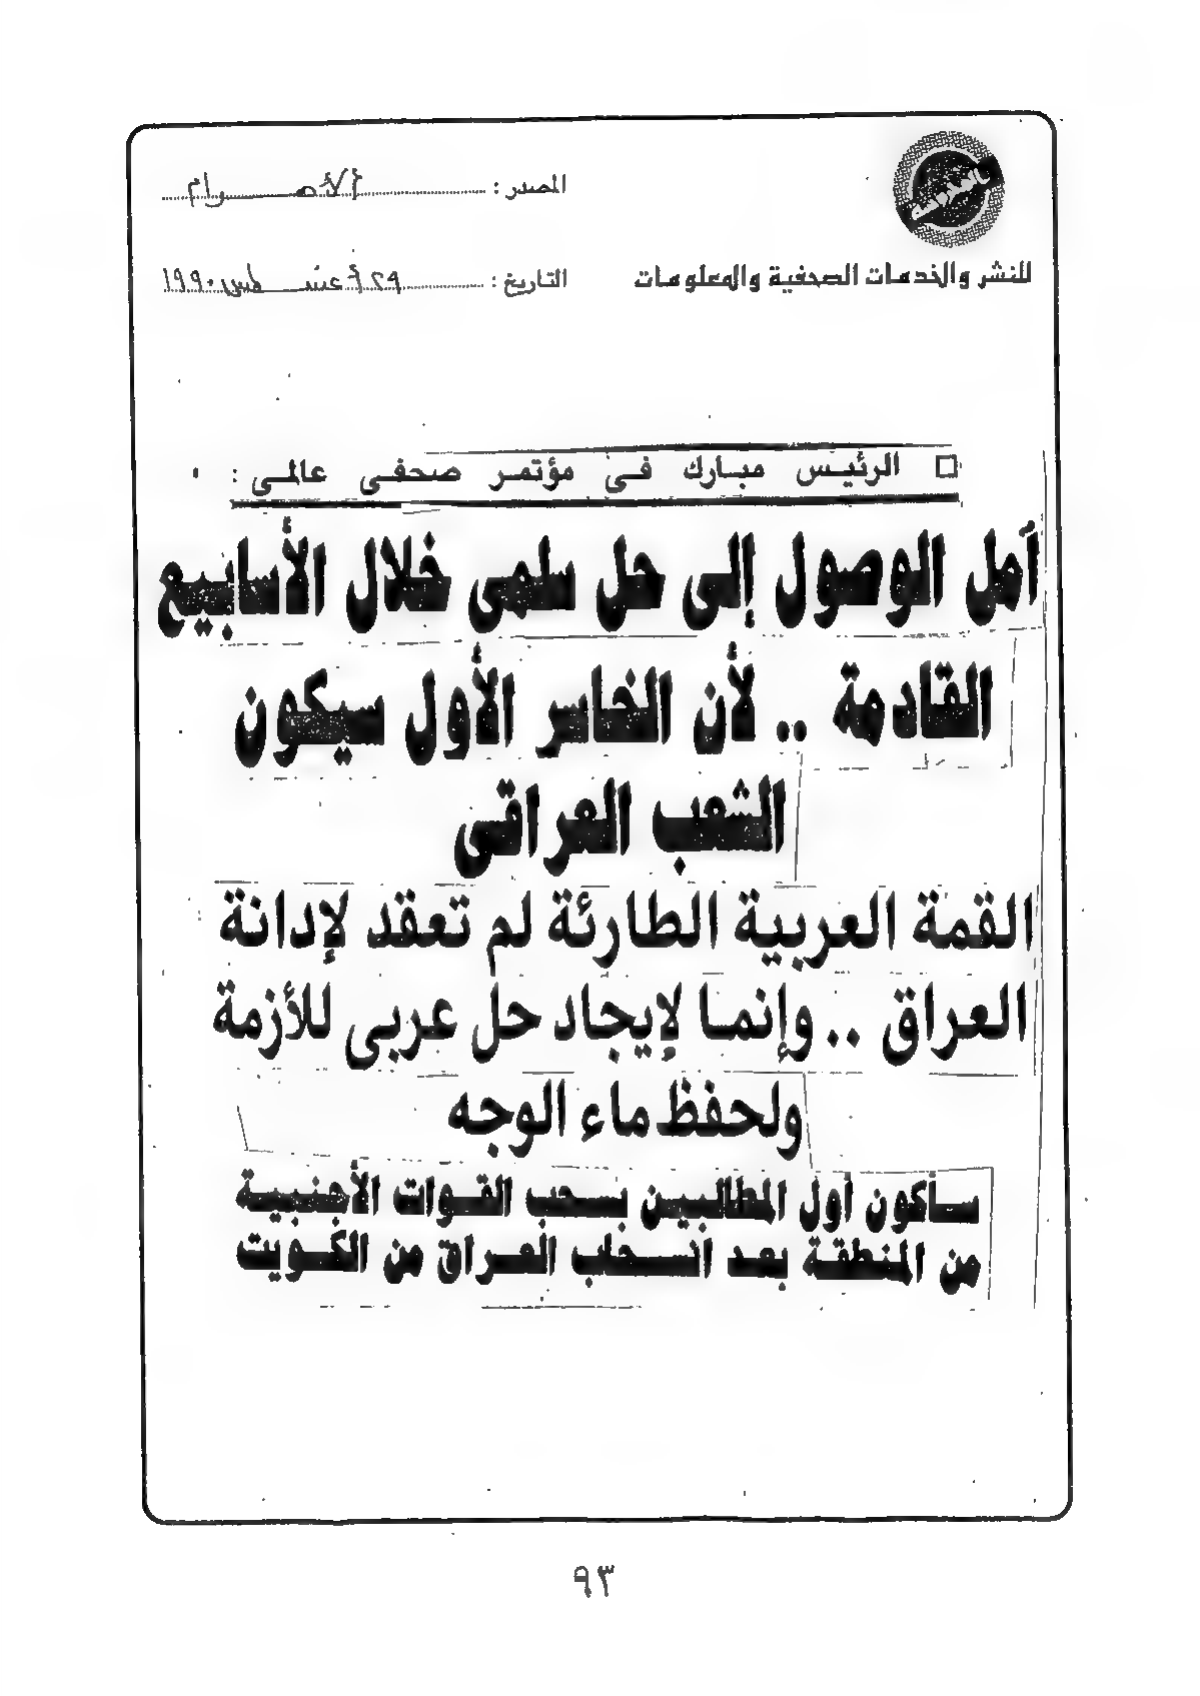 المصدر : الأهرام
للنشر والخدمات الصحفية والمعلومات
التاريخ : ٢٩ أغسطس ١٩٩٠
الرئيس مبارك فى مؤتمر صحفى عالمى :
آمل الوصول إلى حل سلمى خلال الأسابيع
القادمة .. لأن الخاسر الأول سيكون
الشعب العراقى
القمة العربية الطارئة لم تعقد لإدانة
العراق .. وإنما لإيجاد حل عربى للأزمة
ولحفظ ماء الوجه
سأكون أول المطالبين بسحب القوات الأجنبية
من المنطقة بعد انسحاب العراق من الكويت
٩٣